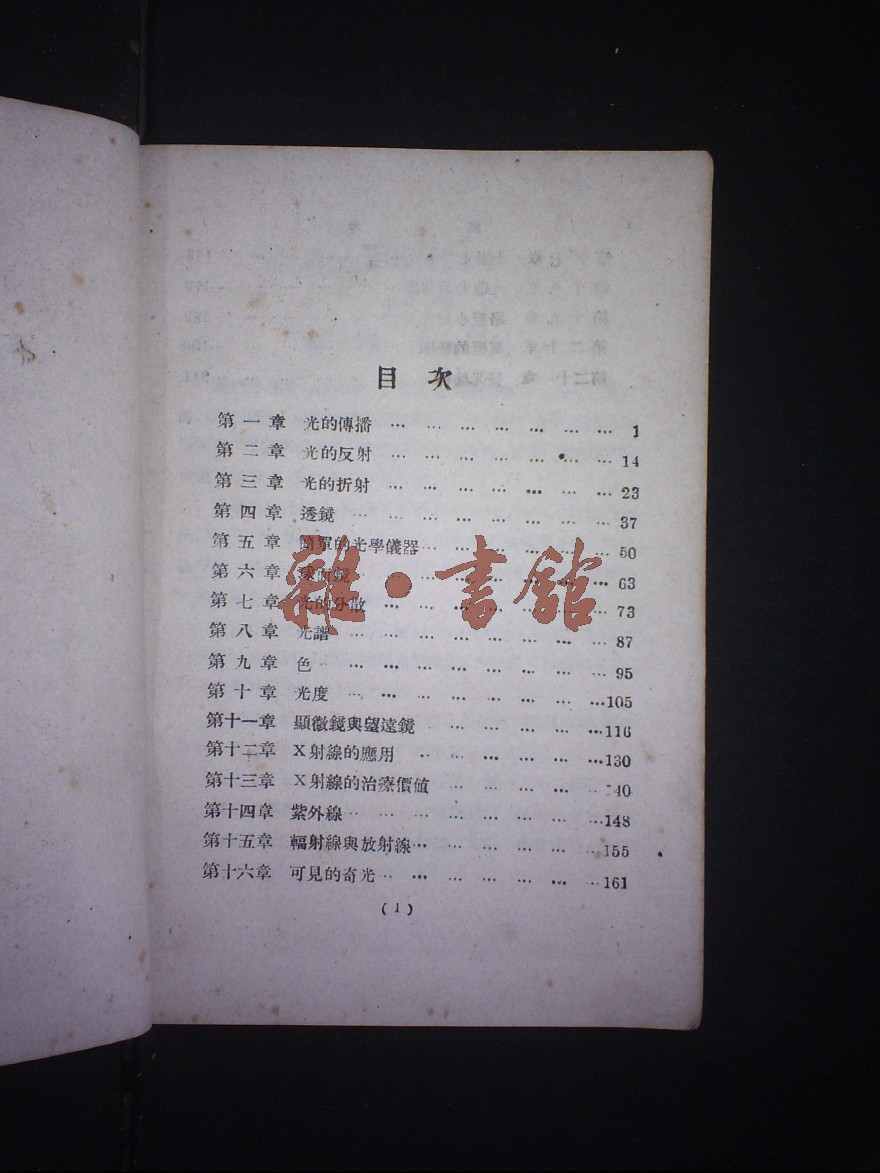 目次
第一章 光的傳播 … … … … … … … 1
第二章 光的反射 … … … … … … … 14
第三章 光的折射 … … … … … … … 23
第四章 透鏡 … … … … … … … … 37
第五章 簡單的光學儀器 … … … … … … 50
第六章 球面鏡 … … … … … … … 63
第七章 光的分散 … … … … … … … 73
第八章 光譜 … … … … … … … … 87
第九章 色 … … … … … … … … 95
第十章 光度 … … … … … … … … 105
第十一章 顯微鏡與望遠鏡 … … … … … … 116
第十二章 X射線的應用 … … … … … … 130
第十三章 X射線的治療價値 … … … … … 140
第十四章 紫外線 … … … … … … … … 148
第十五章 輻射線與放射線 … … … … … … 155
第十六章 可見的奇光 … … … … … … … 161
(1)
雜·書館